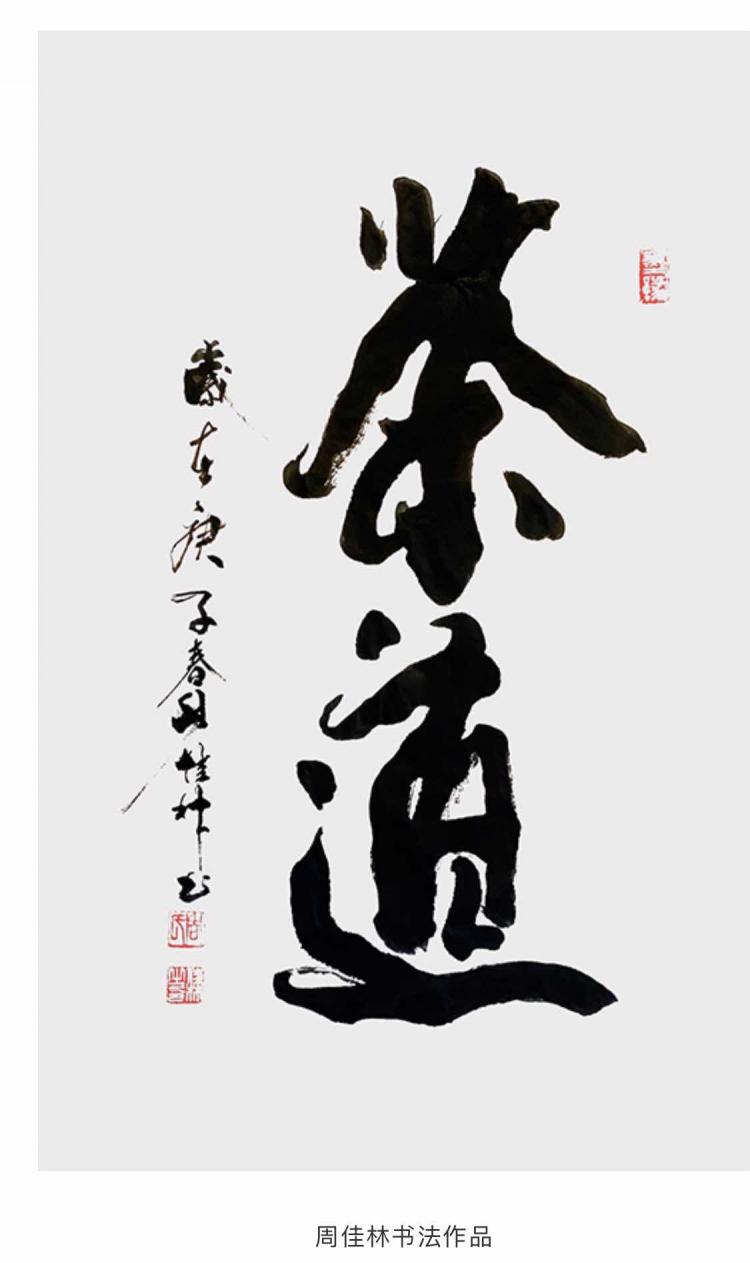 茶道
岁在庚子春月佳林书
周佳林书法作品